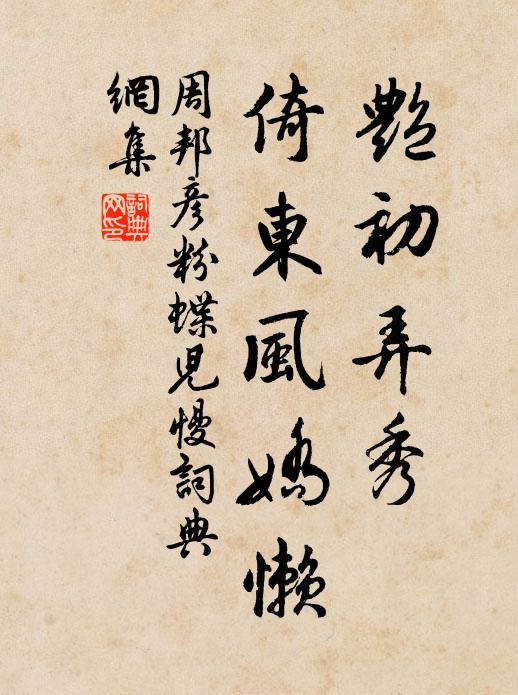 艷初弄秀
倚東風嬌懶
周邦彦粉蝶児慢詞典
網集
詞典
网印